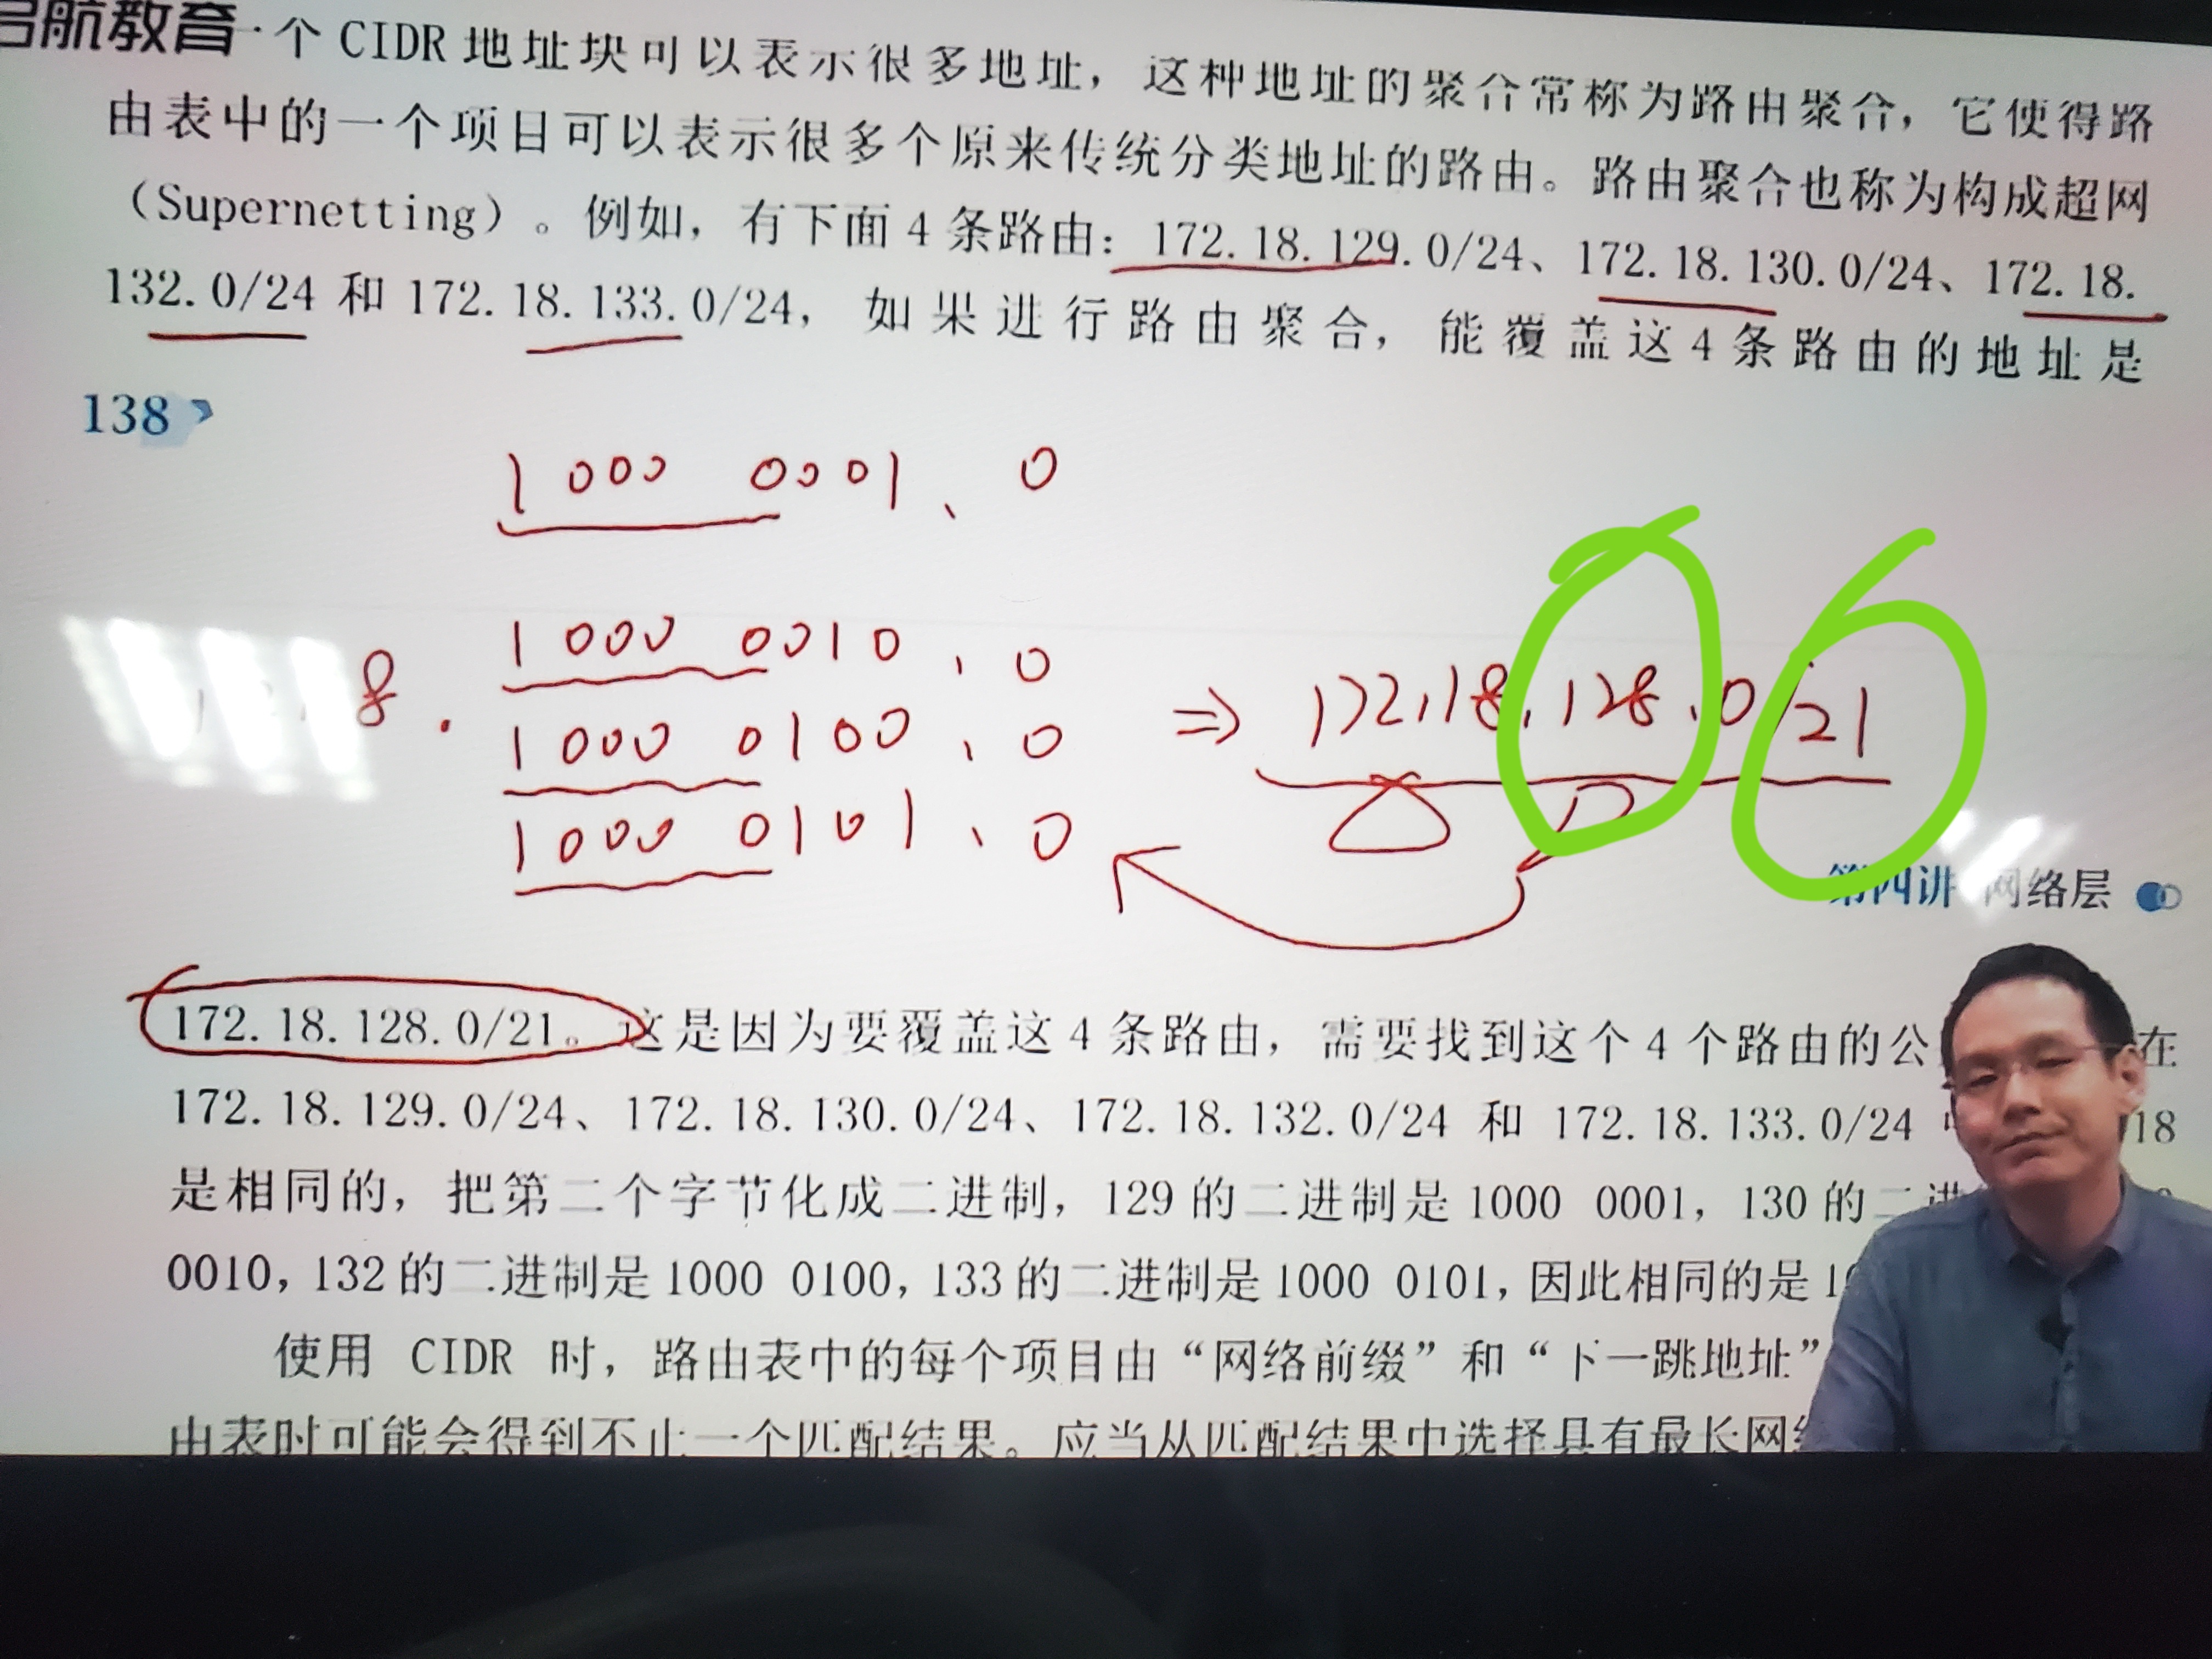 启航教育
一个 CIDR 地址块可以表示很多地址，这种地址的聚合常称为路由聚合，它使得路
由表中的一个项目可以表示很多个原来传统分类地址的路由。路由聚合也称为构成超网
（Supernetting）。例如，有下面 4 条路由：172.18.129.0/24、172.18.130.0/24、172.18.
132.0/24 和 172.18.133.0/24，如果进行路由聚合，能覆盖这 4 条路由的地址是
138
1000 0001.0
8. 1000 0010.0
1000 0100.0
1000 0101.0
⇒ 172.18.128.0/21
第四讲 网络层
172.18.128.0/21。这是因为要覆盖这 4 条路由，需要找到这个 4 个路由的公 在
172.18.129.0/24、172.18.130.0/24、172.18.132.0/24 和 172.18.133.0/24 18
是相同的，把第二个字节化成二进制，129 的二进制是 1000 0001，130 的二进
0010，132 的二进制是 1000 0100，133 的二进制是 1000 0101，因此相同的是
使用 CIDR 时，路由表中的每个项目由“网络前缀”和“下一跳地址”
由表时可能会得到不止一个匹配结果。应当从匹配结果中选择具有最长网